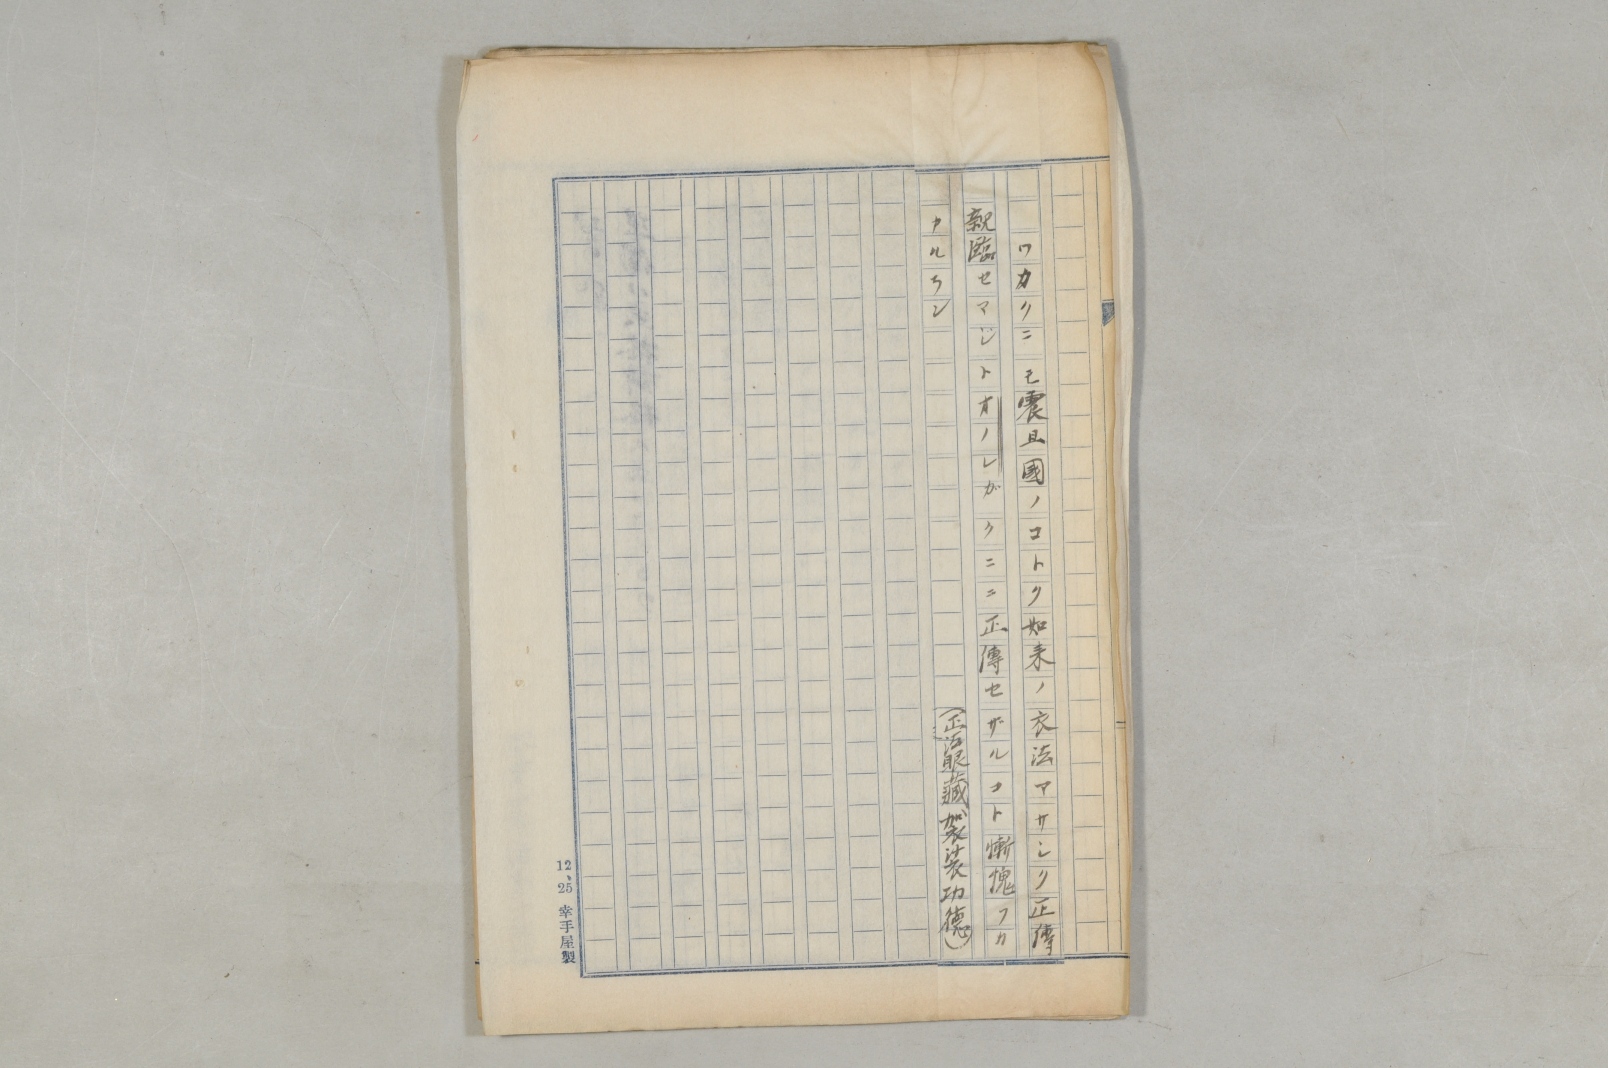 ワカクニモ震旦國ノコトク如来ノ衣法マサシク正傳
親臨セマシトオノレガクニニ正傳セザルコト慚愧フカ
カルラン
(正法眼藏袈裟功德)
12、25 幸手屋製